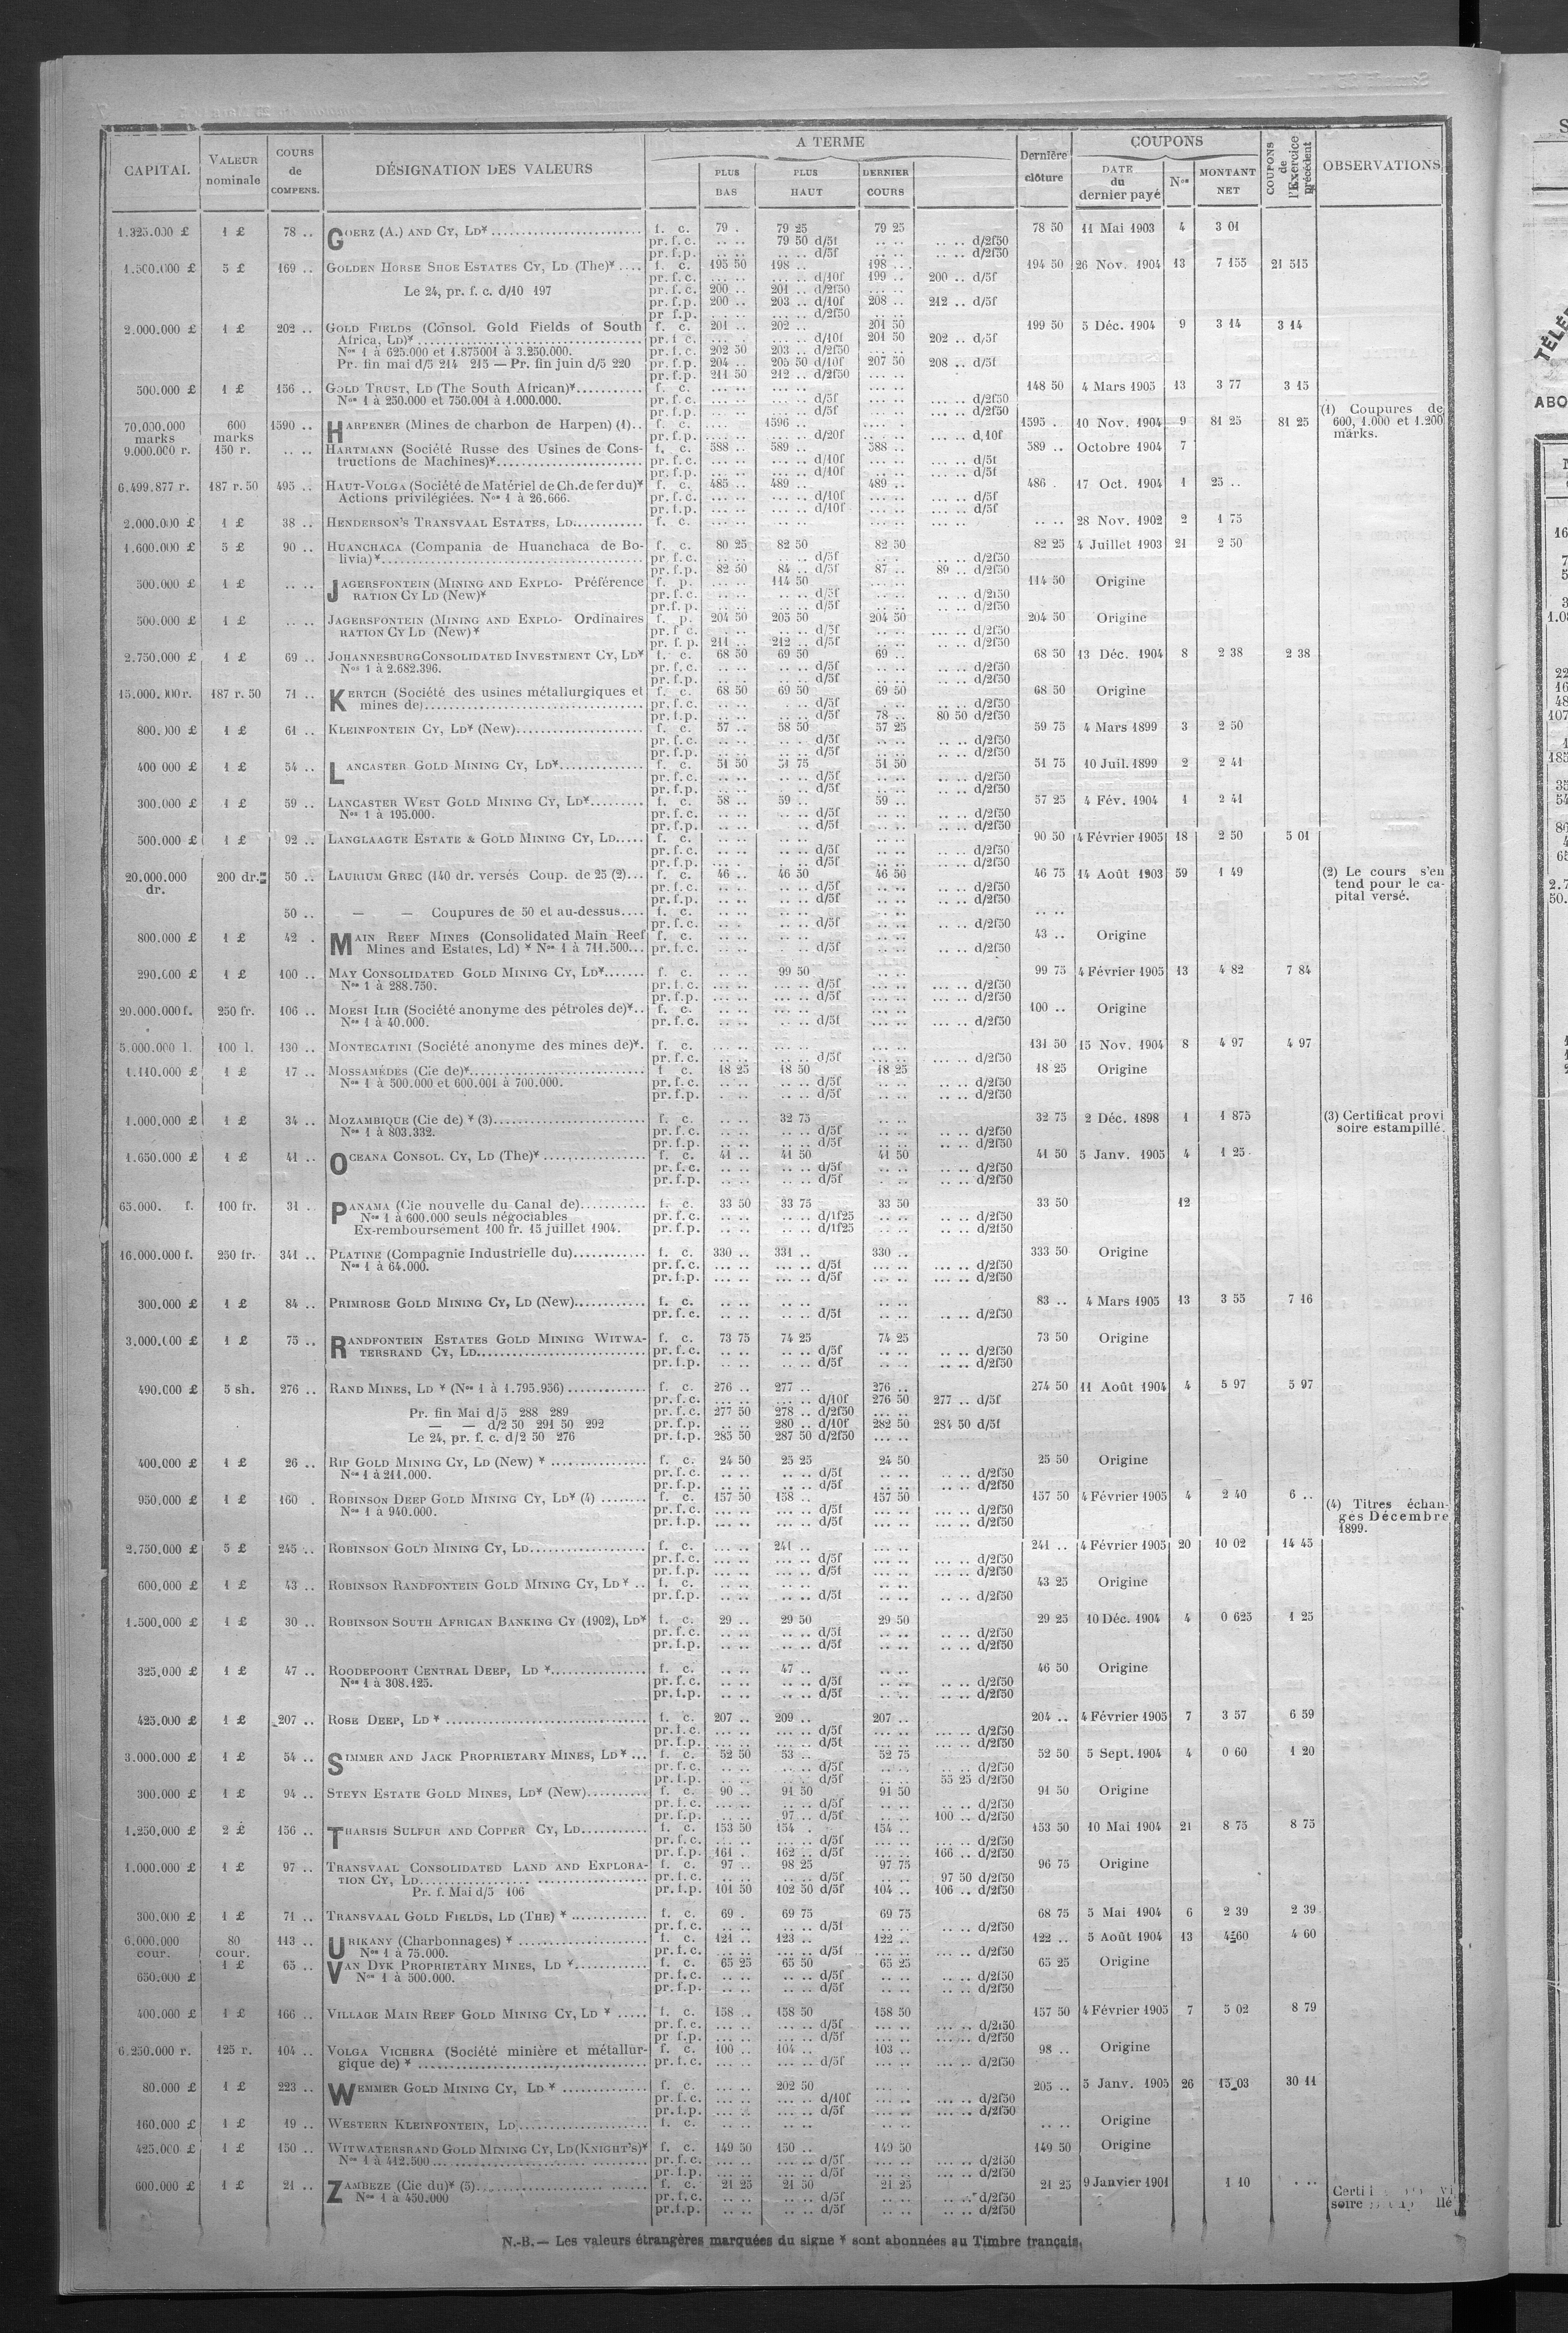 CAPITAL VALEUR nominale COURS de COMPENS. DÉSIGNATION DES VALEURS A TERME PLUS BAS PLUS HAUT DERNIER COURS Dernière clôture COUPONS DATE du dernier payé Nos MONTANT NET COUPONS de l'Exercice précédent OBSERVATIONS
1.325.000 £ 1 £ 78 .. GOERZ (A.) AND CY, LD* f. c. 79 . 79 25 79 25 78 50 11 Mai 1903 4 3 01
pr. f. c. .. .. 79 50 d/5f .. .. .. .. d/2f50
pr. f.p. .. .. .. .. d/5f .. .. .. .. d/2f50
1.500.000 £ 5 £ 169 .. GOLDEN HORSE SHOE ESTATES CY, LD (The)* f. c. 195 50 198 .. 198 .. 194 50 26 Nov. 1904 13 7 155 21 515
pr. f. c. ... .. ... .. d/10f 199 .. 200 .. d/5f
Le 24, pr. f. c. d/10 197 pr. f. c. 200 .. 201 .. d/2f50 ... ..
pr. f.p. 200 .. 203 .. d/10f 208 .. 212 .. d/5f
pr f.p. ... .. ... .. d/2f50
2.000.000 £ 1 £ 202 .. GOLD FIELDS (Consol. Gold Fields of South f. c. 201 .. 202 .. 201 50 199 50 5 Déc. 1904 9 3 14 3 14
Africa, LD)* pr. f c. ... .. ... .. d/10f 201 50 202 .. d/5f
Nos 1 à 625.000 et 1.875001 à 3.250.000. pr. f. c. 202 50 203 .. d/2f50 ... ..
Pr. fin mai d/5 214 215 — Pr. fin juin d/5 220 pr. f.p. 204 .. 205 50 d/10f 207 50 208 .. d/5f
pr. f.p. 211 50 212 .. d/2f50 ... ..
500.000 £ 1 £ 156 .. GOLD TRUST, LD (The South African)* f. c. ... .. ... .. ... .. 148 50 4 Mars 1905 13 3 77 3 15
Nos 1 à 250.000 et 750.001 à 1.000.000. pr. f. c. ... .. ... .. d/5f ... .. ... .. d/2f50
pr. f.p. ... .. ... .. d/5f ... .. ... .. d/2f50
70.000.000 marks 600 marks 1590 .. HARPENER (Mines de charbon de Harpen) (1).. f. c. .... 1596 .. .... . 1595 . 10 Nov. 1904 9 81 25 81 25 (1) Coupures de 600, 1.000 et 1.200 marks.
pr. f.p. ... .. ... .. d/20f ... .. ... .. d,10f
9.000.000 r. 150 r. .. .. HARTMANN (Société Russe des Usines de Cons- f. c. 588 .. 589 .. 588 .. 589 .. Octobre 1904 7
tructions de Machines)* pr. f. c. ... .. ... .. d/10f ... .. ... .. d/5f
pr. f.p. ... .. ... .. d/10f ... .. ... .. d/5f
6.499.877 r. 187 r. 50 495 .. HAUT-VOLGA (Société de Matériel de Ch.de fer du)* f. c. 485 .. 489 .. 489 .. 486 . 17 Oct. 1904 1 25 ..
Actions privilégiées. Nos 1 à 26.666. pr. f. c. ... .. ... .. d/10f ... .. ... .. d/5f
pr. f.p. ... .. ... .. d/10f ... .. ... .. d/5f
2.000.000 £ 1 £ 38 .. HENDERSON'S TRANSVAAL ESTATES, LD. f. c. ... .. ... .. ... .. .. .. 28 Nov. 1902 2 1 75
1.600.000 £ 5 £ 90 .. HUANCHACA (Compania de Huanchaca de Bo- f. c. 80 25 82 50 82 50 82 25 4 Juillet 1903 21 2 50
livia)* pr f. c. .. .. .. .. d/5f .. .. .. .. d/2f50
pr. f.p. 82 50 84 .. d/5f 87 .. 89 .. d/2f50
500.000 £ 1 £ .. .. JAGERSFONTEIN (MINING AND EXPLO- Préférence f. p. ... .. 114 50 ... .. 114 50 Origine
RATION CY LD (New)* pr. f. c. ... .. .. .. d/5f .. .. .. .. d/2f50
pr.f. p. .. .. .. .. d/5f .. .. .. .. d/2f50
500.000 £ 1 £ .. .. JAGERSFONTEIN (MINING AND EXPLO- Ordinaires f. p. 204 50 205 50 204 50 204 50 Origine
RATION CY LD (New)* pr. f c. .. .. .. .. d/5f .. .. ... .. d/2f50
pr. f. p. 211 .. 212 .. d/5f .. .. ... .. d/2f50
2.750.000 £ 1 £ 69 .. JOHANNESBURG CONSOLIDATED INVESTMENT CY, LD* f. c. 68 50 69 50 69 .. 68 50 13 Déc. 1904 8 2 38 2 38
Nos 1 à 2.682.396. pr. f. c. .. .. .. .. d/5f .. .. .. .. d/2f50
pr. f.p. .. .. .. .. d/5f .. .. .. .. d/2f50
15.000.000 r. 187 r. 50 71 .. KERTCH (Société des usines métallurgiques et f. c. 68 50 69 50 69 50 68 50 Origine
mines de) pr. f. c. .. .. .. .. d/5f . .. .. .. d/2f50
pr. f.p. .. .. .. .. d/5f 78 .. 80 50 d/2f50
800.000 £ 1 £ 61 .. KLEINFONTEIN CY, LD* (New) f. c. 57 .. 58 50 57 25 59 75 4 Mars 1899 3 2 50
pr. f. c. .. .. .. .. d/5f .. .. .. .. d/2f50
pr. f.p. .. .. .. .. d/5f .. .. .. .. d/2f50
400 000 £ 1 £ 54 .. LANCASTER GOLD MINING CY, LD* f. c. 51 50 51 75 51 50 51 75 10 Juil. 1899 2 2 41
pr. f. c. .. .. .. .. d/5f .. .. .. .. d/2f50
pr. f.p. .. .. .. .. d/5f .. .. .. .. d/2f50
300.000 £ 1 £ 59 .. LANCASTER WEST GOLD MINING CY, LD* f. c. 58 .. 59 .. 59 .. 57 25 4 Fév. 1904 1 2 41
Nos 1 à 195.000. pr. f. c. .. .. .. .. d/5f .. .. .. .. d/2f50
pr. f.p. .. .. .. .. d/5f .. .. .. .. d/2f50
500.000 £ 1 £ 92 .. LANGLAAGTE ESTATE & GOLD MINING CY, LD f. c. .. .. .. .. .. .. 90 50 4 Février 1905 18 2 50 5 01
pr. f. c. .. .. .. .. d/5f .. .. .. .. d/2f50
pr. f.p. .. .. .. .. d/5f .. .. .. .. d/2f50
20.000.000 dr. 200 dr. 50 .. LAURIUM GREC (140 dr. versés Coup. de 25 (2) f. c. 46 .. 46 50 46 50 46 75 14 Août 1903 59 1 49 (2) Le cours s'en tend pour le ca- pital versé.
pr. f. c. .. .. .. .. d/5f .. .. .. .. d/2f50
pr. f.p. .. .. .. .. d/5f .. .. .. .. d/2f50
50 .. — — Coupures de 50 et au-dessus f. c. .. .. .. .. .. .. .. ..
pr. f. c. .. .. .. .. d/5f .. .. .. .. d/2f50
800.000 £ 1 £ 42 . MAIN REEF MINES (Consolidated Main Reef f. c. .. .. .. .. .. .. 43 .. Origine
Mines and Estates, Ld) * Nos 1 à 711.500 pr. f. c. .. .. .. .. d/5f .. .. .. .. d/2f50
290.000 £ 1 £ 100 .. MAY CONSOLIDATED GOLD MINING CY, LD* f. c. .. .. 99 50 .. .. 99 75 4 Février 1905 13 4 82 7 84
Nos 1 à 288.750. pr. f. c. ... .. ... .. d/5f ... .. ... .. d/2f50
pr. f.p. ... .. ... .. d/5f ... .. ... .. d/2f50
20.000.000 f. 250 fr. 106 .. MOESI ILIR (Société anonyme des pétroles de)* f. c. ... .. ... .. ... .. 100 .. Origine
Nos 1 à 40.000. pr. f. c. ... .. ... .. d/5f ... .. ... .. d/2f50
5.000.000 l. 100 l. 130 .. MONTECATINI (Société anonyme des mines de)*. f. c. ... .. ... .. ... .. 131 50 15 Nov. 1904 8 4 97 4 97
pr. f. c. ... .. ... .. d/5f ... .. ... .. d/2f50
1.110.000 £ 1 £ 17 .. MOSSAMÉDÈS (Cie de)* f c. 18 25 18 50 18 25 18 25 Origine
Nos 1 à 500.000 et 600.001 à 700.000. pr. f. c. .. .. .. .. d/5f .. .. .. .. d/2f50
pr. f.p. .. .. .. .. d/5f .. .. .. .. d/2f50
1.000.000 £ 1 £ 34 .. MOZAMBIQUE (Cie de) * (3) f. c. .. .. 32 75 .. .. 32 75 2 Déc. 1898 1 1 875 (3) Certificat provi soire estampillé.
Nos 1 à 803.332. pr. f. c. .. .. .. .. d/5f .. .. .. .. d/2f50
pr. f.p. .. .. .. .. d/5f .. .. .. .. d/2f50
1.650.000 £ 1 £ 41 .. OCEANA CONSOL. CY, LD (The)* f. c. 41 .. 41 50 41 50 41 50 5 Janv. 1905 4 1 25
pr. f. c. .. .. .. .. d/5f .. .. .. .. d/2f50
pr. f.p. .. .. .. .. d/5f .. .. .. .. d/2f50
65.000. f. 100 fr. 31 . PANAMA (Cie nouvelle du Canal de) f. c. 33 50 33 75 33 50 33 50 12
Nos 1 à 600.000 seuls négociables pr. f. c. .. .. .. .. d/1f25 .. .. .. .. d/2f50
Ex-remboursement 100 fr. 15 juillet 1904. pr. f.p. .. .. .. .. d/1f25 .. .. .. .. d/2f50
16.000.000 f. 250 fr. 341 .. PLATINE (Compagnie Industrielle du) f. c. 330 .. 331 .. 330 .. 333 50 Origine
Nos 1 à 64.000. pr. f. c. ... .. ... .. d/5f ... .. ... .. d/2f50
pr. f.p. ... .. ... .. d/5f ... .. ... .. d/2f50
300.000 £ 1 £ 84 .. PRIMROSE GOLD MINING CY, LD (New) f. c. .. .. .. .. .. .. 83 .. 4 Mars 1905 13 3 55 7 16
pr. f. c. .. .. .. .. d/5f .. .. .. .. d/2f50
3.000.000 £ 1 £ 75 .. RANDFONTEIN ESTATES GOLD MINING WITWA- f. c. 73 75 74 25 74 25 73 50 Origine
TERSRAND CY, LD pr. f. c. .. .. .. .. d/5f .. .. .. .. d/2f50
pr. f.p. .. .. .. .. d/5f .. .. .. .. d/2f50
490.000 £ 5 sh. 276 .. RAND MINES, LD * (Nos 1 à 1.795.956) f. c. 276 .. 277 .. 276 .. 274 50 11 Août 1904 4 5 97 5 97
pr. f. c. ... .. ... .. d/10f 276 50 277 .. d/5f
Pr. fin Mai d/5 288 289 pr. f. c. 277 50 278 .. d/2f50 ... ..
— — d/2 50 291 50 292 pr. f.p. .. .. 280 .. d/10f 282 50 284 50 d/5f
Le 24, pr. f. c. d/2 50 276 pr. f.p. 285 50 287 50 d/2f50 ... ..
400.000 £ 1 £ 26 .. RIP GOLD MINING CY, LD (New) * f. c. 24 50 25 25 24 50 25 50 Origine
Nos 1 à 211.000. pr. f. c. .. .. .. .. d/5f .. .. .. .. d/2f50
pr. f.p. .. .. .. .. d/5f .. .. .. .. d/2f50
950.000 £ 1 £ 160 . ROBINSON DEEP GOLD MINING CY, LD* (4) f. c. 157 50 158 .. 157 50 157 50 4 Février 1905 4 2 40 6 .. (4) Titres échan- gés Décembre 1899.
Nos 1 à 940.000. pr. f. c. ... .. ... .. d/5f ... .. ... .. d/2f50
pr. f.p. ... .. ... .. d/5f ... .. ... .. d/2f50
2.750.000 £ 5 £ 245 .. ROBINSON GOLD MINING CY, LD f. c. ... .. 241 .. ... .. 241 .. 4 Février 1905 20 10 02 14 45
pr. f. c. ... .. ... .. d/5f ... .. ... .. d/2f50
pr. f.p. ... .. ... .. d/5f ... .. ... .. d/2f50
600.000 £ 1 £ 43 .. ROBINSON RANDFONTEIN GOLD MINING CY, LD * f. c. .. .. .. .. .. .. 43 25 Origine
pr. f.p. .. .. .. .. d/5f .. .. .. .. d/2f50
1.500.000 £ 1 £ 30 .. ROBINSON SOUTH AFRICAN BANKING CY (1902), LD* f. c. 29 .. 29 50 29 50 29 25 10 Déc. 1904 4 0 625 1 25
pr. f. c. .. .. .. .. d/5f .. .. .. .. d/2f50
pr. f.p. .. .. .. .. d/5f .. .. .. .. d/2f50
325.000 £ 1 £ 47 .. ROODEPOORT CENTRAL DEEP, LD * f. c. .. .. 47 .. .. .. 46 50 Origine
Nos 1 à 308.125. pr. f. c. .. .. .. .. d/5f .. .. .. .. d/2f50
pr. f.p. .. .. .. .. d/5f .. .. .. .. d/2f50
425.000 £ 1 £ 207 .. ROSE DEEP, LD * f. c. 207 .. 209 .. 207 .. 204 .. 4 Février 1905 7 3 57 6 59
pr. f. c. ... .. ... .. d/5f ... .. ... .. d/2f50
pr. f.p. ... .. ... .. d/5f ... .. ... .. d/2f50
3.000.000 £ 1 £ 54 .. SIMMER AND JACK PROPRIETARY MINES, LD * f. c. 52 50 53 .. 52 75 52 50 5 Sept. 1904 4 0 60 1 20
pr. f. c. .. .. .. .. d/5f .. .. .. .. d/2f50
pr. f.p. .. .. .. .. d/5f .. .. 55 25 d/2f50
300.000 £ 1 £ 94 .. STEYN ESTATE GOLD MINES, LD* (New) f. c. 90 .. 91 50 91 50 91 50 Origine
pr. f. c. ... .. .. .. d/5f .. .. .. .. d/2f50
pr. f.p. ... .. 97 .. d/5f .. .. 100 .. d/2f50
1.250.000 £ 2 £ 156 .. THARSIS SULFUR AND COPPER CY, LD f. c. 153 50 154 . 154 .. 153 50 10 Mai 1904 21 8 75 8 75
pr. f. c. ... .. ... .. d/5f ... .. ... .. d/2f50
pr. f.p. 161 . 162 .. d/5f ... .. 166 .. d/2f50
1.000.000 £ 1 £ 97 .. TRANSVAAL CONSOLIDATED LAND AND EXPLORA- f. c. 97 .. 98 25 97 75 96 75 Origine
TION CY, LD pr. f. c. ... .. ... .. d/5f ... .. 97 50 d/2f50
Pr. f. Mai d/5 106 pr. f.p. 101 50 102 50 d/5f 104 .. 106 .. d/2f50
300.000 £ 1 £ 71 .. TRANSVAAL GOLD FIELDS, LD (THE) * f. c. 69 . 69 75 69 75 68 75 5 Mai 1904 6 2 39 2 39
pr. f. c. .. .. .. .. d/5f .. .. .. .. d/2f50
6.000.000 cour. 80 cour. 113 .. URIKANY (Charbonnages) * f. c. 121 .. 123 .. 122 .. 122 .. 5 Août 1904 13 4 60 4 60
Nos 1 à 75.000. pr. f. c. ... .. ... .. d/5f ... .. ... .. d/2f50
650.000 £ 1 £ 65 .. VAN DYK PROPRIETARY MINES, LD * f. c. 65 25 65 50 65 25 65 25 Origine
Nos 1 à 500.000. pr. f. c. .. .. .. .. d/5f .. .. .. .. d/2f50
pr. f.p. .. .. .. .. d/5f .. .. .. .. d/2f50
400.000 £ 1 £ 166 .. VILLAGE MAIN REEF GOLD MINING CY, LD * f. c. 158 .. 158 50 158 50 157 50 4 Février 1905 7 5 02 8 79
pr. f. c. ... .. ... .. d/5f ... .. ... .. d/2f50
pr f.p. ... .. ... .. d/5f ... .. ... .. d/2f50
6.250.000 r. 125 r. 104 .. VOLGA VICHERA (Société minière et métallur- f. c. 100 .. 104 .. 103 .. 98 .. Origine
gique de) * pr. f. c. ... .. ... .. d/5f ... .. ... .. d/2f50
80.000 £ 1 £ 223 .. WEMMER GOLD MINING CY, LD * f. c. ... .. 202 50 ... . 205 .. 5 Janv. 1905 26 15 03 30 11
pr. f. c. ... .. ... .. d/10f ... .. ... .. d/2f50
pr. f.p. ... .. ... .. d/5f ... .. ... .. d/2f50
160.000 £ 1 £ 19 .. WESTERN KLEINFONTEIN, LD f. c. .. .. .. .. .. .. .. .. Origine
425.000 £ 1 £ 150 .. WITWATERSRAND GOLD MINING CY, LD (KNIGHT'S)* f. c. 149 50 150 .. 149 50 149 50 Origine
Nos 1 à 412.500 pr. f. c. ... .. ... .. d/5f ... .. ... .. d/2f50
pr. f.p. ... .. ... .. d/5f ... .. ... .. d/2f50
600.000 £ 1 £ 21 .. ZAMBEZE (Cie du)* (5) f. c. 21 25 21 50 21 25 21 25 9 Janvier 1901 1 10 . ..
Nos 1 à 450.000 pr. f. c. .. .. .. .. d/5f .. .. .. .. d/2f50
pr.f.p. .. .. .. .. d/5f .. .. .. .. d/2f50
soire
N.-B. — Les valeurs étrangères marquées du signe * sont abonnées au Timbre français.
TÉLÉ
ABO